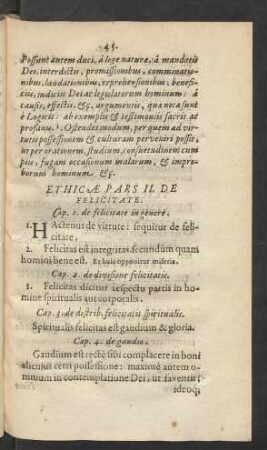 45.
Possunt autem duci, à lege naturæ, à mandatis
Dei, interdictis, promissionibus, comminatio-
nibus, laudationibus, reprehensionibus, benefi-
ciis, iudiciis Dei ac legislatorum hominum: à
causis, effectis, &c, argumentis, quæ nota sunt
è Logicis: ab exemplis & testimoniis sacris ac
profanis. Ostendes modum, per quem ad vir-
tutis possessionem & culturam perveniri possit,
ut per orationem, studium, consuetudinem cum
piis, fugam occasionum malarum, & impro-
borum hominum &c.
ETHICÆ PARS II. DE
FELICITATE.
Cap. 1. de felicitate in genere.
1. HActenus de virtute: sequitur de feli-
citate.
2. Felicitas est integritas secundum quam
homini bene est. Et huic opponitur miseria.
Cap. 2. de divisione felicitatis.
1. Felicitas dicitur respectu partis in ho-
mine spiritualis aut corporalis.
Cap. 3. de distrib. felicitatis spiritualis.
Spiritualis felicitas est gaudium & gloria.
Cap. 4. de gaudio.
Gaudium est recte sibi complacere in boni
alicuius certi possessione: maxime autem o-
mnium in contemplatione Dei, ut faventis:
ideoq;